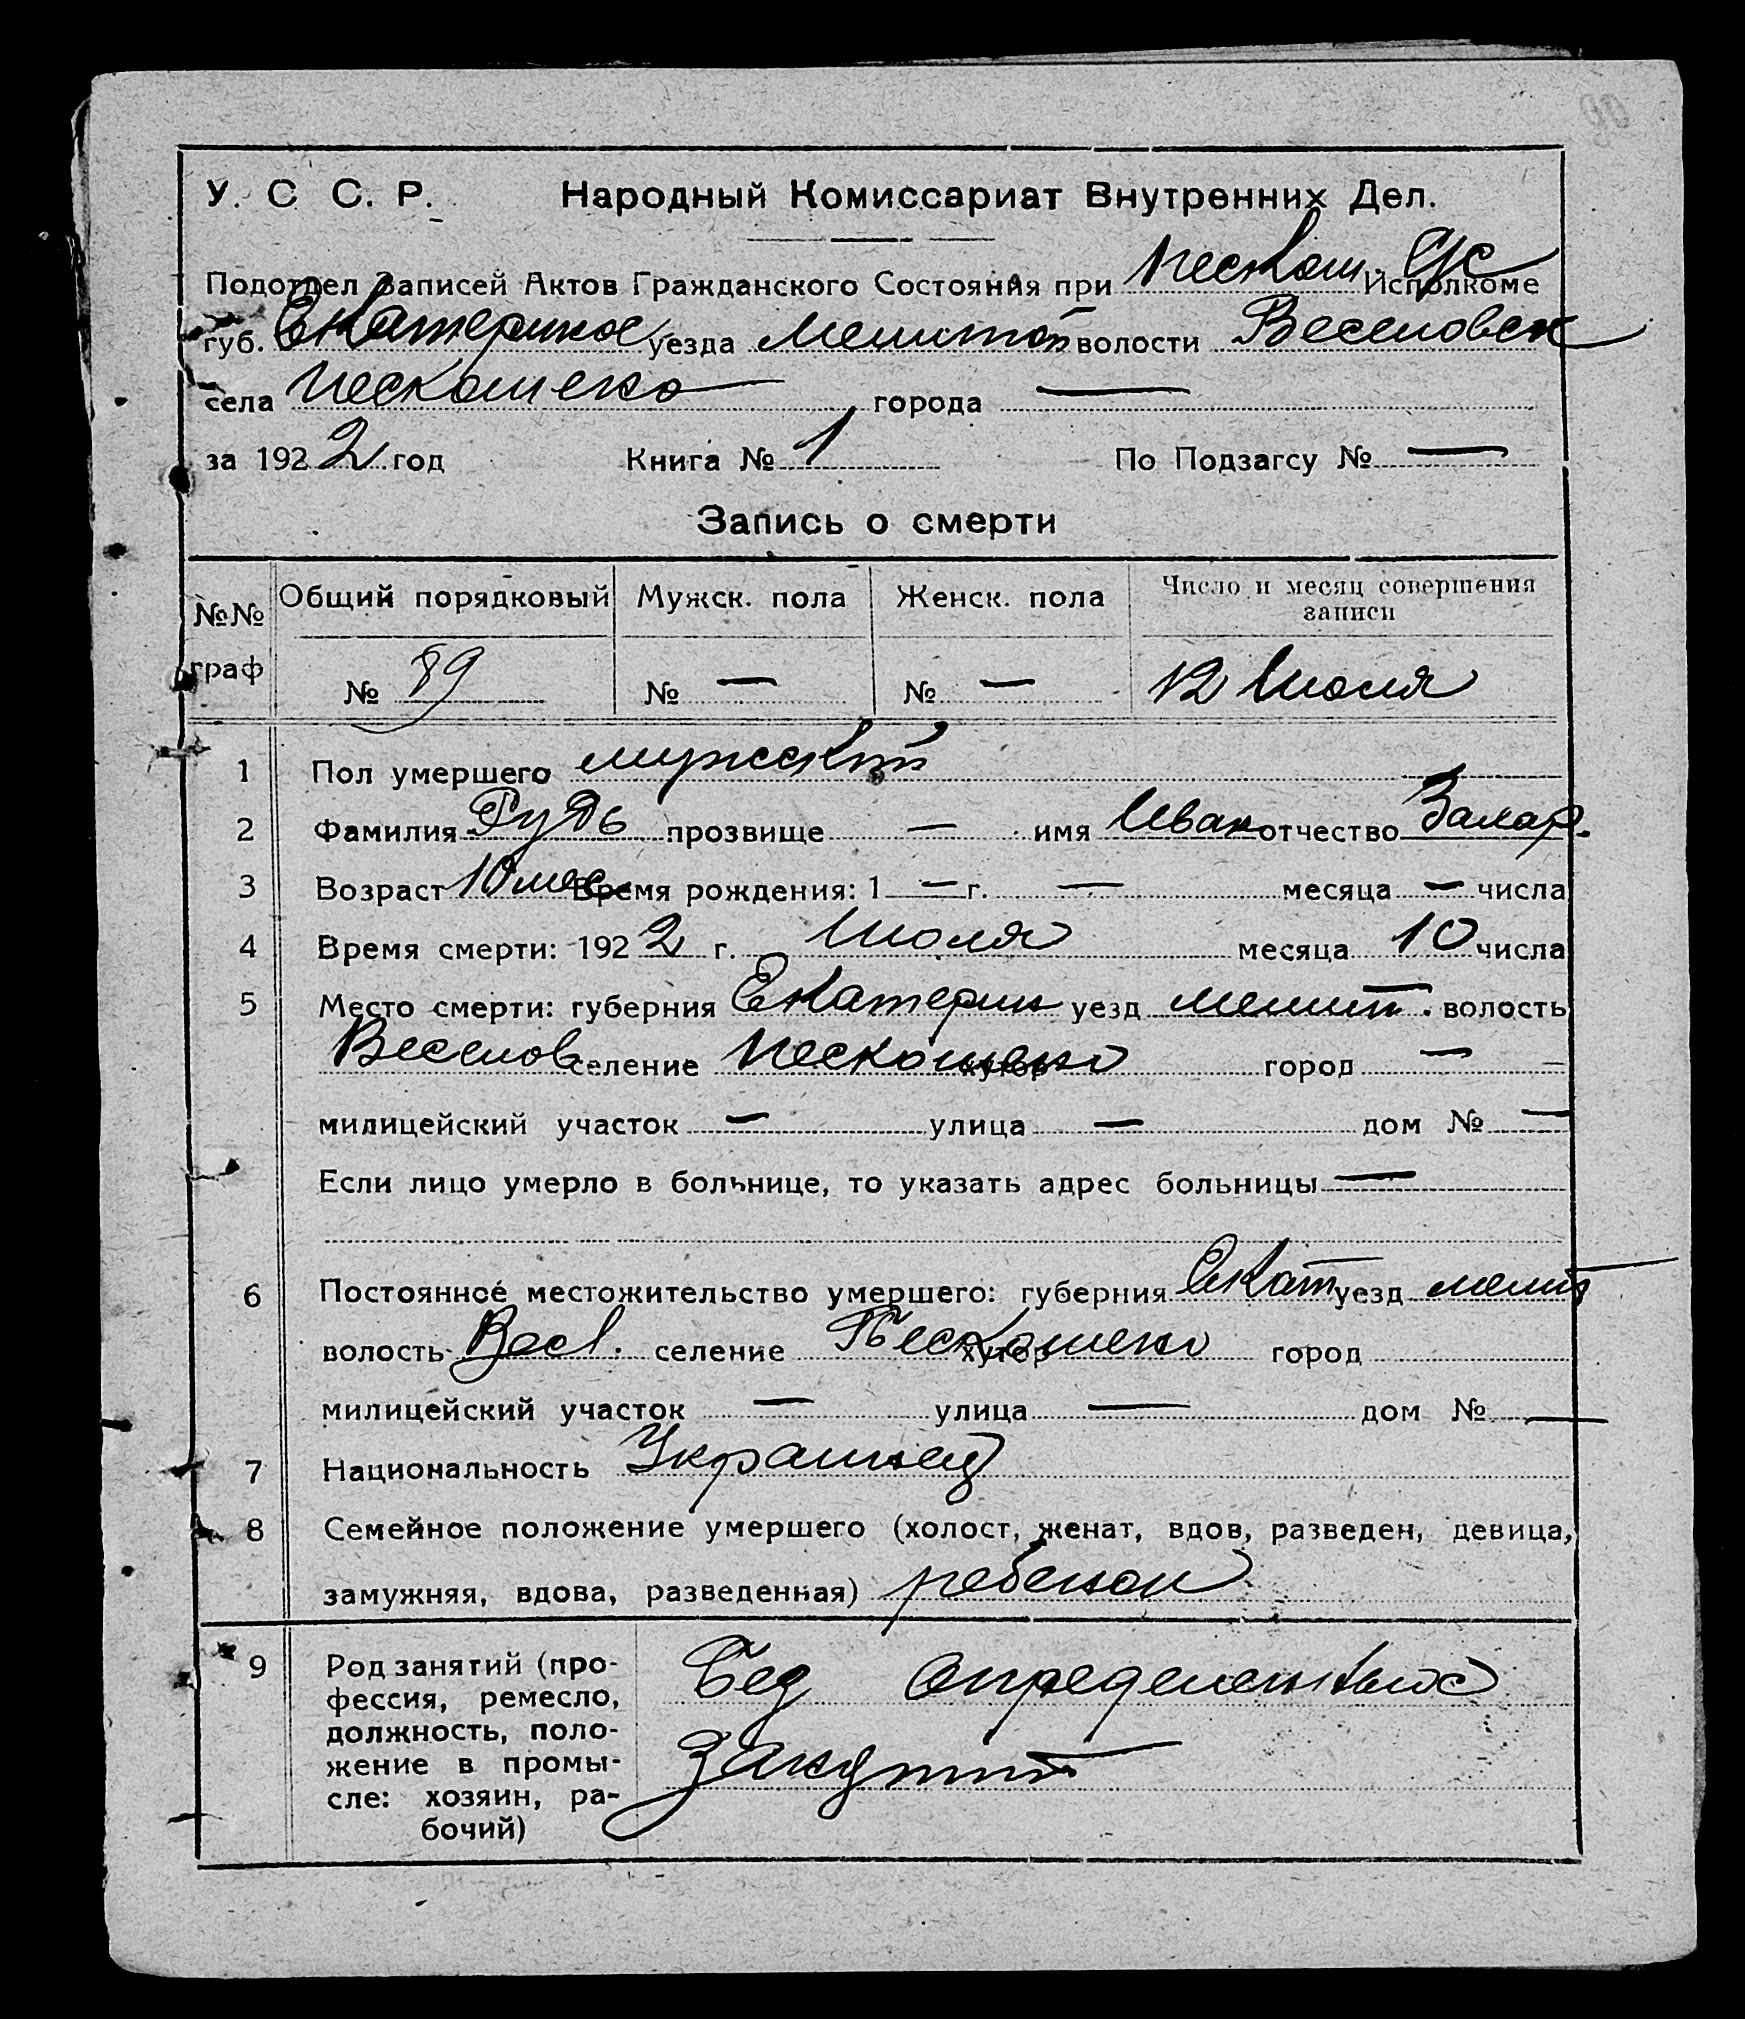 У. С С. Р. Народный Комиссариат Внутренних Дел.
Подотдел Записей Актов Гражданского Состояния при Пескош. Исполкоме
губ. Екатеринос уезда Мелитоп волости Веселовск
села Пескошено города —
за 1922 год Книга № 1 По Подзагсу № —
Запись о смерти
№№ граф Общий порядковый Мужск. пола Женск. пола Число и месяц совершения записи
№ 89 № — № — 12 Июля
1 Пол умершего мужской
2 Фамилия Рудь прозвище — имя Иван отчество Захар.
3 Возраст 10 мес Время рождения: 1 — г. — месяца — числа
4 Время смерти: 1922 г. Июля месяца 10 числа
5 Место смерти: губерния Екатерин уезд мелит. волость
Веселов селение Пескошено хутор город —
милицейский участок — улица — дом № —
Если лицо умерло в больнице, то указать адрес больницы —
6 Постоянное местожительство умершего: губерния Екат уезд мелит
волость Весел. селение Пескошено хутор город
милицейский участок — улица — дом № —
7 Национальность Украинец
8 Семейное положение умершего (холост, женат, вдов, разведен, девица,
замужняя, вдова, разведенная) ребенок
9 Род занятий (про-
фессия, ремесло,
должность, поло-
жение в промы-
сле: хозяин, ра-
бочий)
Без определенных
занятий